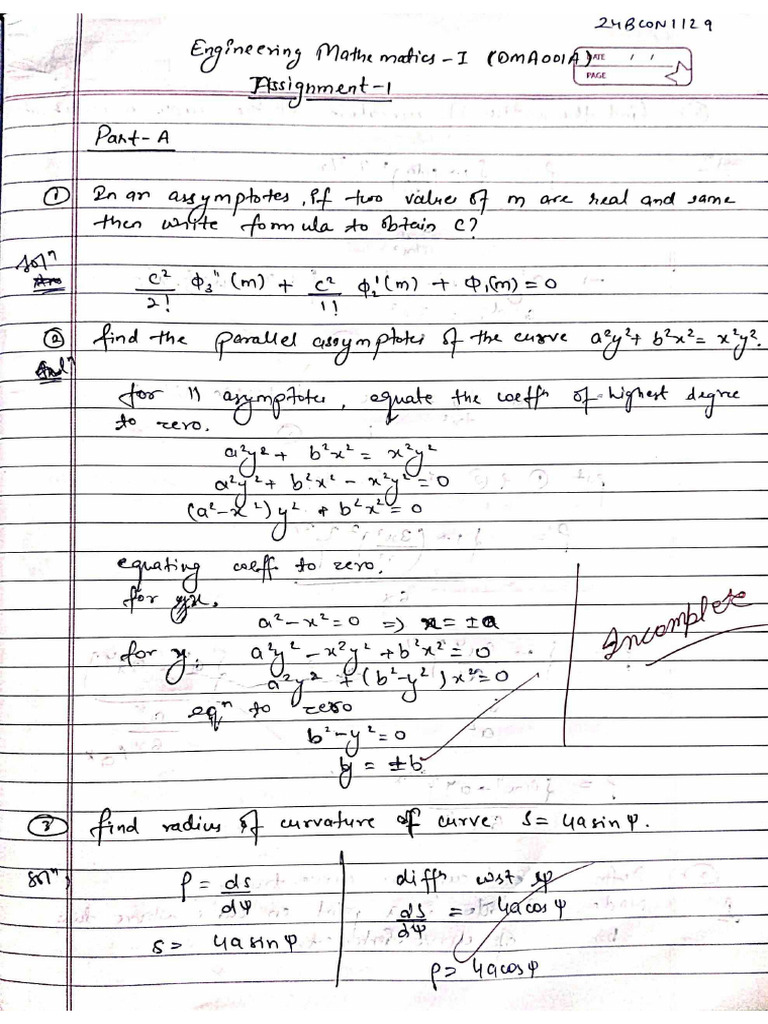 24BCON1129
Engineering Mathematics-I (DMA001A)
DATE / /
PAGE
Assignment-1
Part-A
① In an assymptotes, if two values of m are real and same
then write formula to obtain c?
Solⁿ
c²/2! Φ₃"(m) + c²/1! Φ₂'(m) + Φ₁(m) = 0
② find the parallel assymptotes of the curve a²y² + b²x² = x²y².
for 11 asymptotes, equate the coeffⁿ of highest degree
to zero.
a²y² + b²x² = x²y²
a²y² + b²x² - x²y² = 0
(a² - x²) y² + b²x² = 0
equating coeff. to zero.
for x,
a² - x² = 0 => x = ±a
Incomplete
for y, a²y² - x²y² + b²x² = 0
a²y² + (b² - y²) x² = 0
eqⁿ to zero
b² - y² = 0
y = ±b
③ find radius of curvature of curve S = 4a sin φ.
Solⁿ, ρ = ds/dφ
s = 4a sin φ
diffⁿ wrt φ
ds/dφ = 4a cos φ
ρ = 4a cos φ